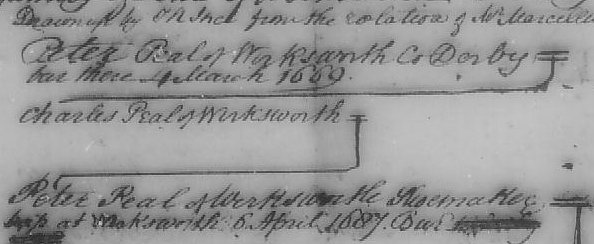 Drawn up by from the relation of Mr Marcellu
Peter Peal of Worksworth Co Derby =
bur there 4 March 1669.
Charles Peal of Wirksworth =
Peter Peal of Werksworth Shoemaker =
bap at Worksworth 6 April 1687. Bur